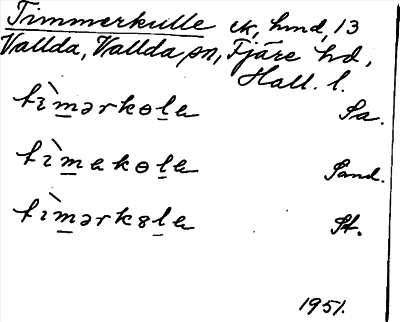 Timmerkulle ek, hmd, 13
Vallda, Vallda sn, Fjäre hd,
Hall. l.
tìmərkɵla Sa.
tìmakɵla Sand.
tìmərk8la St.
1951.